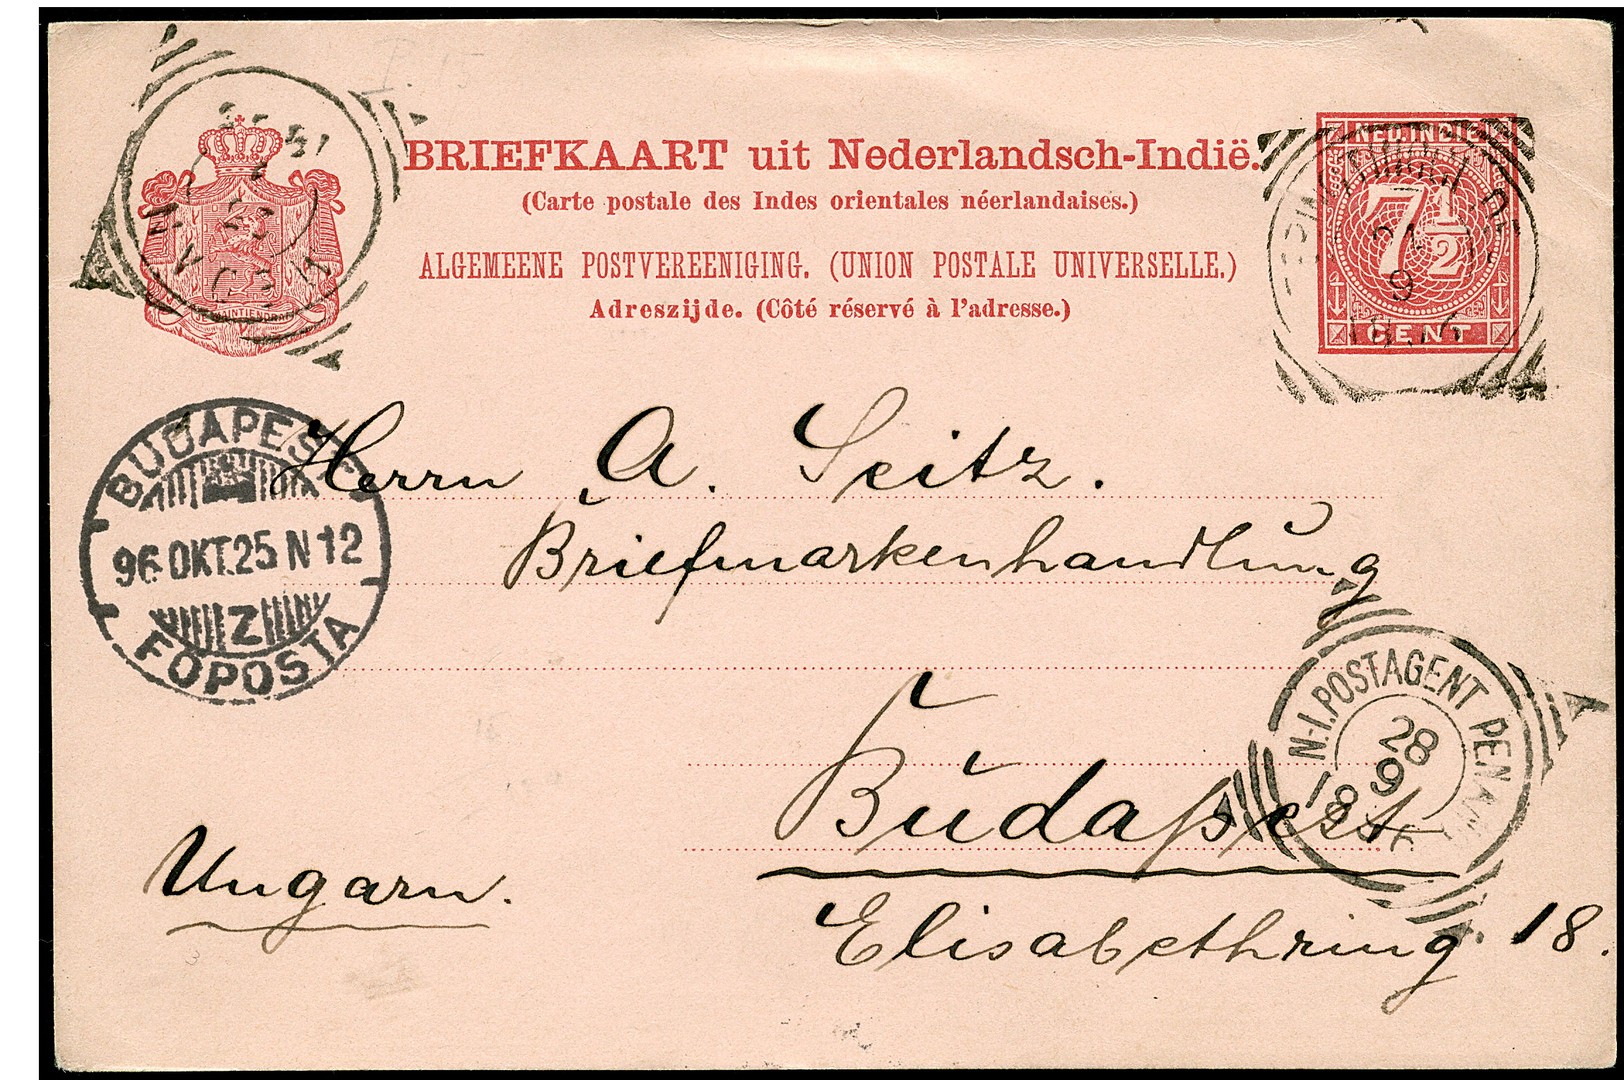 BRIEFKAART uit Nederlandsch-Indië.
(Carte postale des Indes orientales néerlandaises.)
ALGEMEENE POSTVEREENIGING. (UNION POSTALE UNIVERSELLE.)
Adreszijde. (Côté réservé à l'adresse.)
JE MAINTIENDRAI
NED. INDIE
7 1/2
CENT
9
Herrn A. Seitz.
Briefmarkenhandlung
Büdapest
Elisabethring 18.
Ungarn.
BUDAPEST
96 OKT. 25 N 12
Z
FŐPOSTA
N-I. POSTAGENT PENANG
28
9